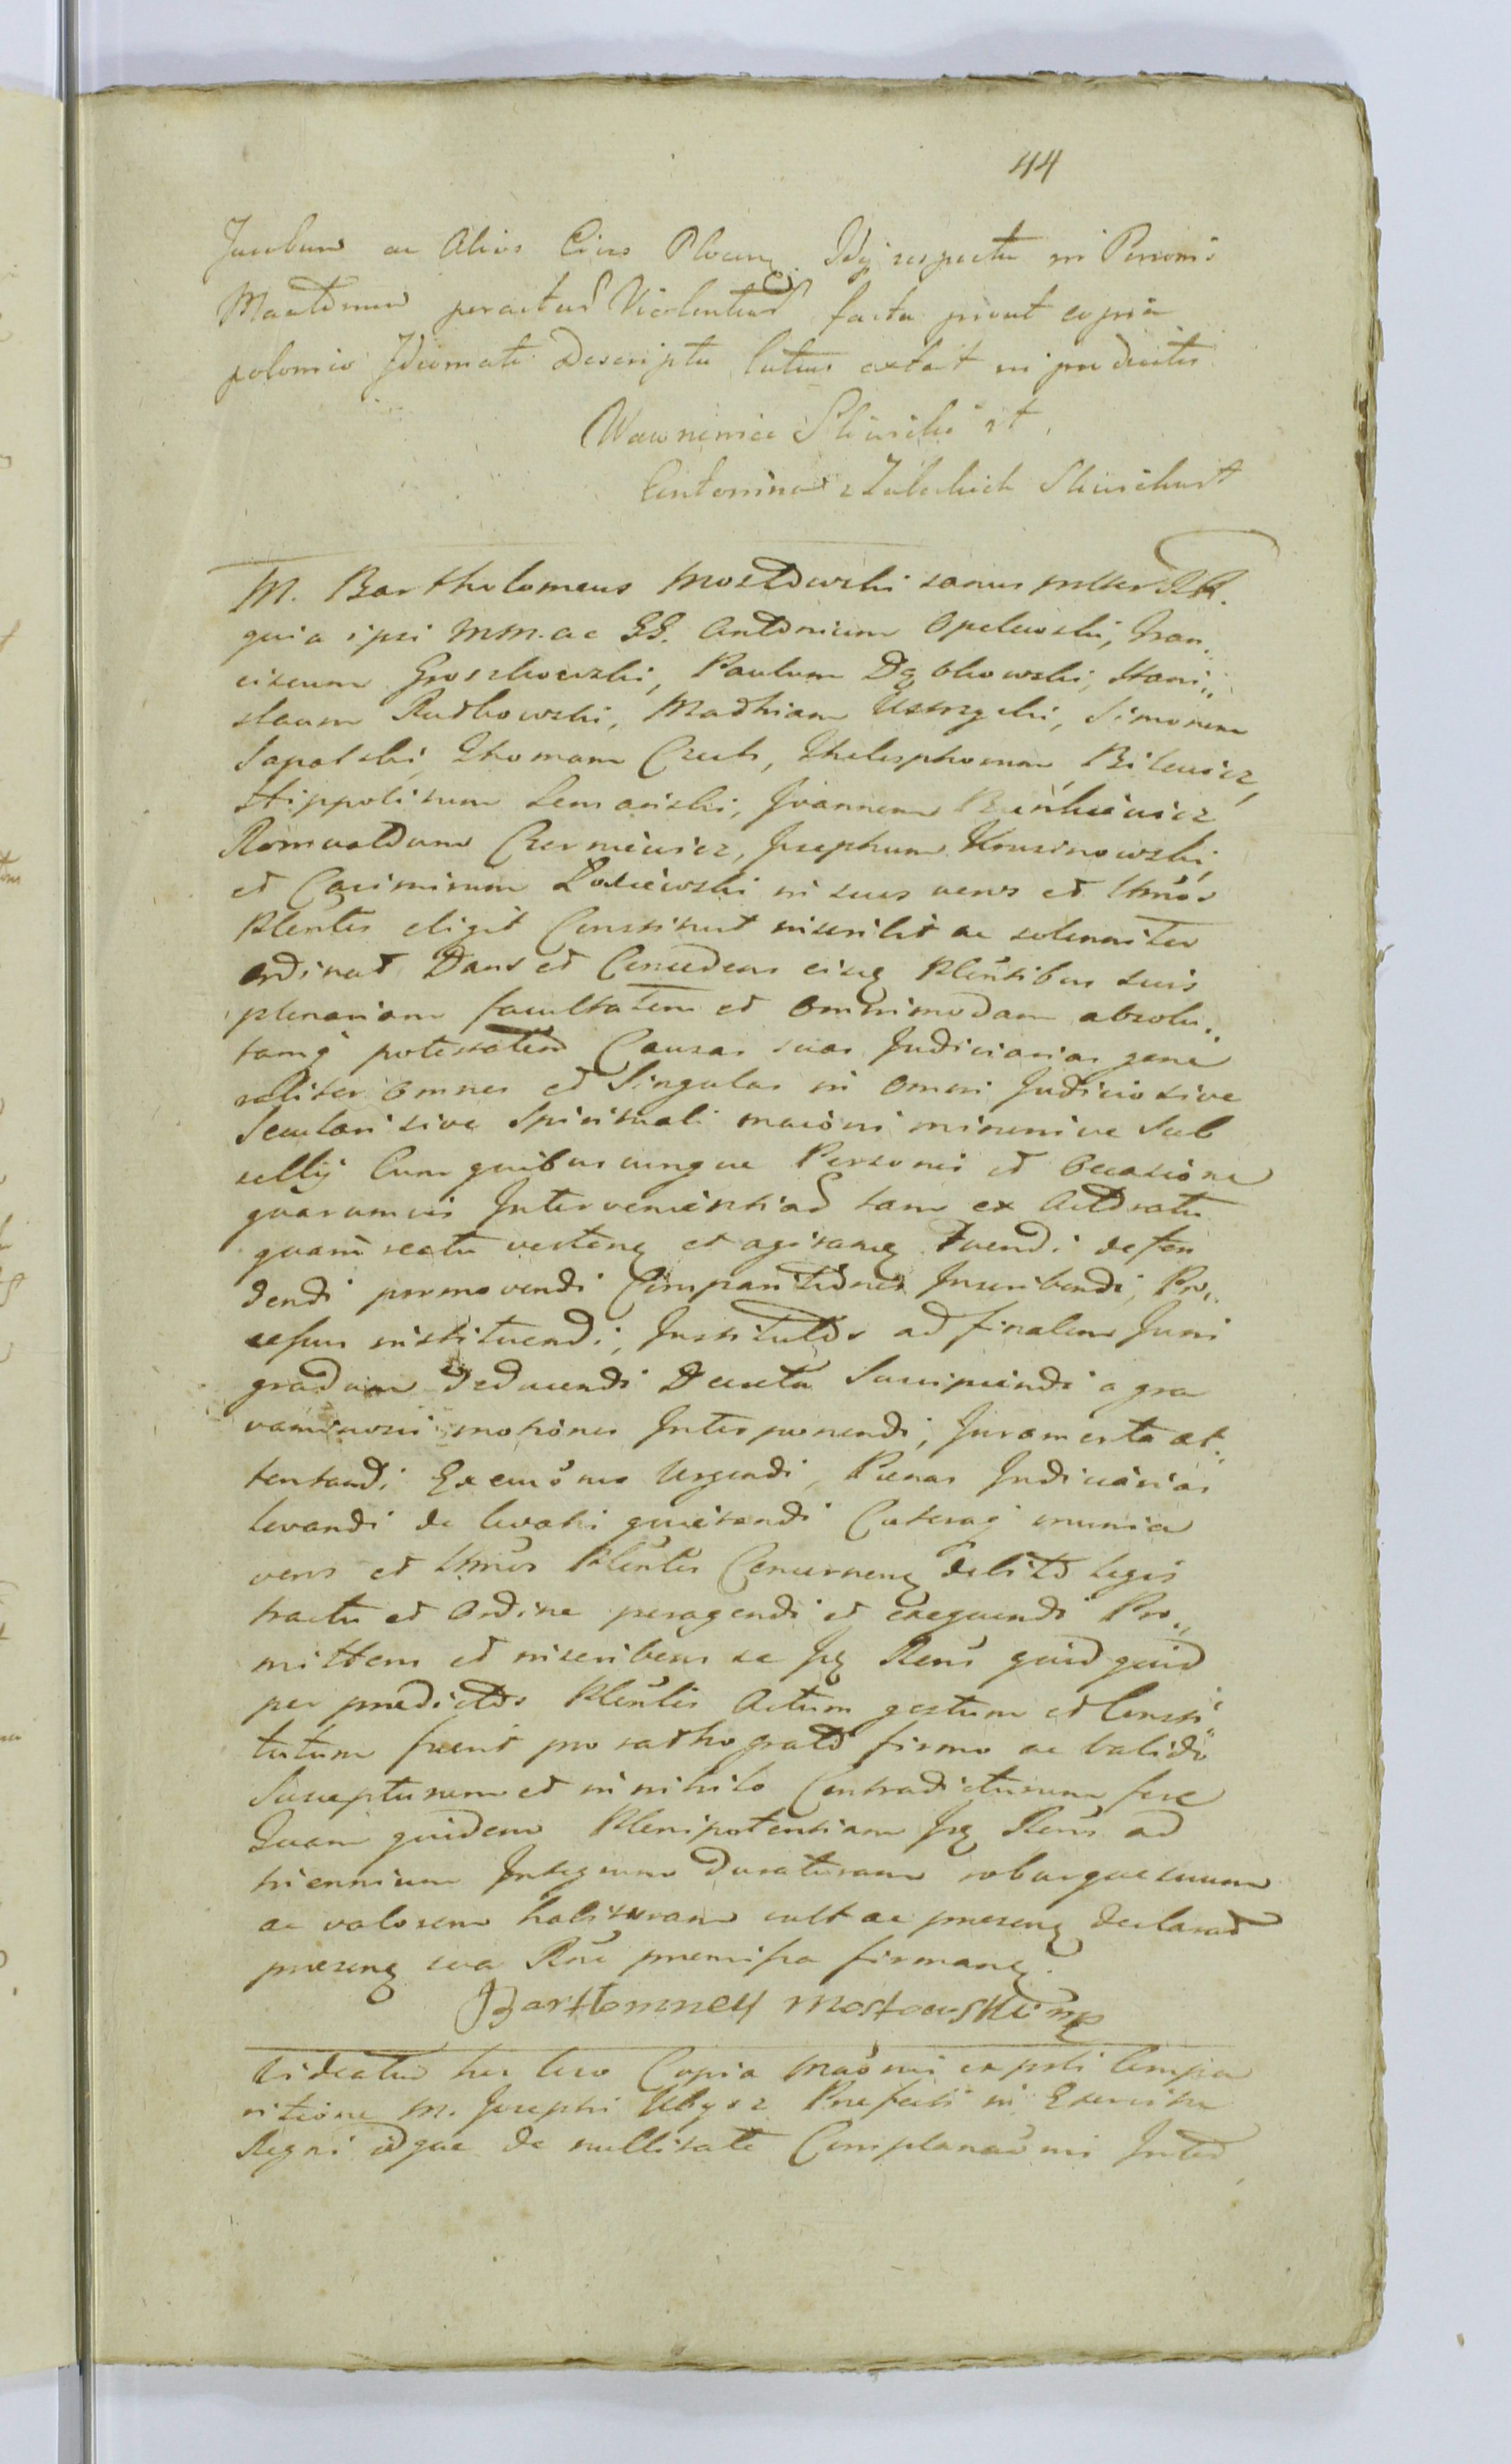 44
ac Alios Cives Plocen Idq respectu in Personis
peractas Violentias facta prout copia
polonico Idiomate Descripta latius extat in producto
Wawrzeniec Sliwiski
Antonina z Sliwiska
M. Bartholomeus Mostowski sanus
quia ipsi MM. ac GG. Antonium Opalewski, Fran„
ciscum Groszkowski, Paulum Dąbkowski, Stani„
slaum Rudkowski, Mathiam Simonem
Sapalski, Thomam Czech, Thelesphorum Bilewicz,
Hippolitum Lemański, Joannem Bińkiewicz
Romualdum Czerniewicz, Josephum Krusinowski,
et Casimirum in suos veros et lttmos
Plentes eligit Constituit inscribit ac solenniter
ordinat Dans et Concedens eisq Plentibus suis
plenariam facultatem et omnimodam absolu„
tamq potestatem Causas suas Judiciarias gene
raliter omnes et Singulas in omni Judicio sive
Seculari sive Spirituali maiori minorive Sub
sellij Cum quibuscunque Personis et occasione
quarumvis Intervenientias tam ex Actoratu
quam reatu verten et agitan Tuendi defen
dendi promovendi Comparitiones Inscribendi, Pro„
cessus instituendi, Institutos ad finalem Juris
gradum deducendi Decreta Suscipiendi a gra
vaminosis motiones Interponendi, Juramenta at„
tentandi Executiones Urgendi, Paenas Judiciarias
levandi de levatis quietandi Caeteraq munia
veros et lttmos Plentes Concernen debito legis
tractu et ordine peragendi et exequendi Pro„
mittens et inscribens se Isq Rens quidquid
per praedictos Plentes Actum gestum et Consti„
tutum fuerit pro ratho grato firmo ac valido
Suscepturum et in nihilo Contradicturum fore
Quam quidem Plenipotentiam Isq Rens ad
triennium Integrum Duraturam roburque suum
ac valorem habituram vult ac presen declarat
presen sua Rne premissa firman.
Bartłomiey Mostowski mp
Copia
ritione M. Josephi Prefecti in Exercitu
Regni idque de nullitate